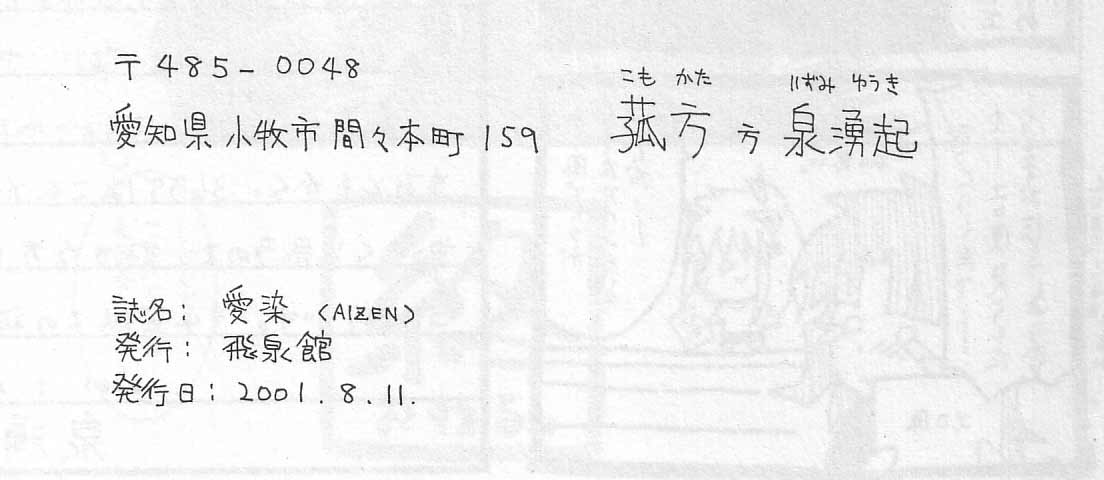 〒485-0048
愛知県小牧市間々本町159
こも かた いずみ ゆうき
菰方方 泉湧起
誌名: 愛染 〈AIZEN〉
発行: 飛泉館
発行日: 2001.8.11.